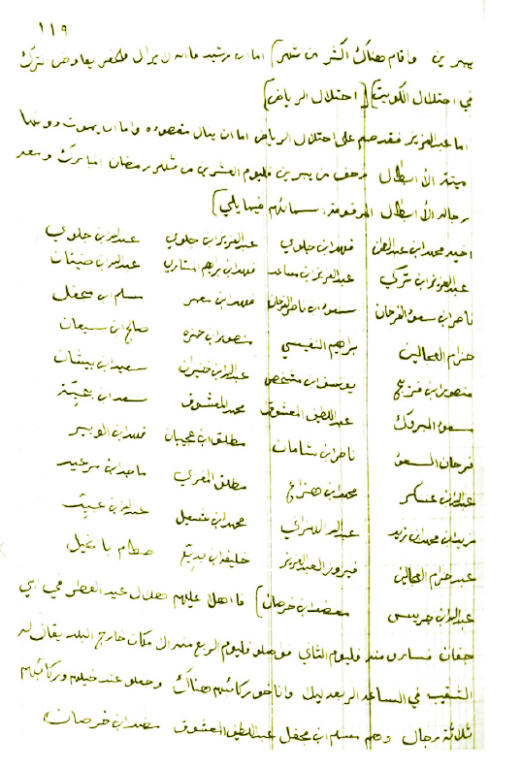 ١١٩
يبرين واقام هناك اكثر من شهر) اما ابن رشيد فانه لا يزال يفاوض الترك
في احتلال الكويت) (احتلال الرياض)
اما عبدالعزيز فقد صمم على احتلال الرياض اما ان ينال مقصوده واما ان يموت دونها
ميتة الأبطال فزحف من يبرين فليوم العشرين من شهر رمضان المبارك ومعه
رجاله الأبطال المرقومة اسمائهم فيما يلي)
اخيه محمد ابن عبدالرحمن فهد ابن جلوي عبدالعزيز ابن جلوي عبدالله ابن جلوي
عبدالعزيز ابن تركي عبدالعزيز ابن مساعد فهد ابن برهيم المشاري عبدالله ابن صنيتان
ناصر ابن سعود الفرحان سعود ابن ناصر الفرحان فهد ابن معمر مسلم ابن مجفل
حزام العجالين برهيم النفيسي منصور ابن حمزه صالح ابن سبعان
منصور ابن فريج يوسف ابن مشخص عبدالله ابن خنيزان سعيد ابن بيشان
سعود المبروك عبداللطيف المعشوق محمد المعشوق سعد ابن بخيت
فرحان السعود ناصر ابن شامان مطلق ابن عجيبان فهد ابن الوبير
عبدالله ابن عسكر محمد ابن هزاع مطلق المغربي ماجد ابن مرعيد
زيد ابن محمد ابن زيد عبدالله محمد ابن عبدالله ابن عبيد
عبد حزام العجالين فيروز العبدالعزيز خليفه ابن بديع سطام ابا الخيل
عبدالله ابن جريس معضد ابن خرصان) فا اهل عليهم هلال عيد الفطر في ابي
جفان فسارو منه فليوم الثاني فوصلو فليوم الربع منه الى مكان خارج البلد يقال له
الشقيب في الساعه الربعه ليلا واناخو ركائبهم هناك وجعلو عند خيلهم وركائبهم
ثلاثة رجال وهم مسلم ابن مجفل عبداللطيف المعشوق معضد ابن خرصان